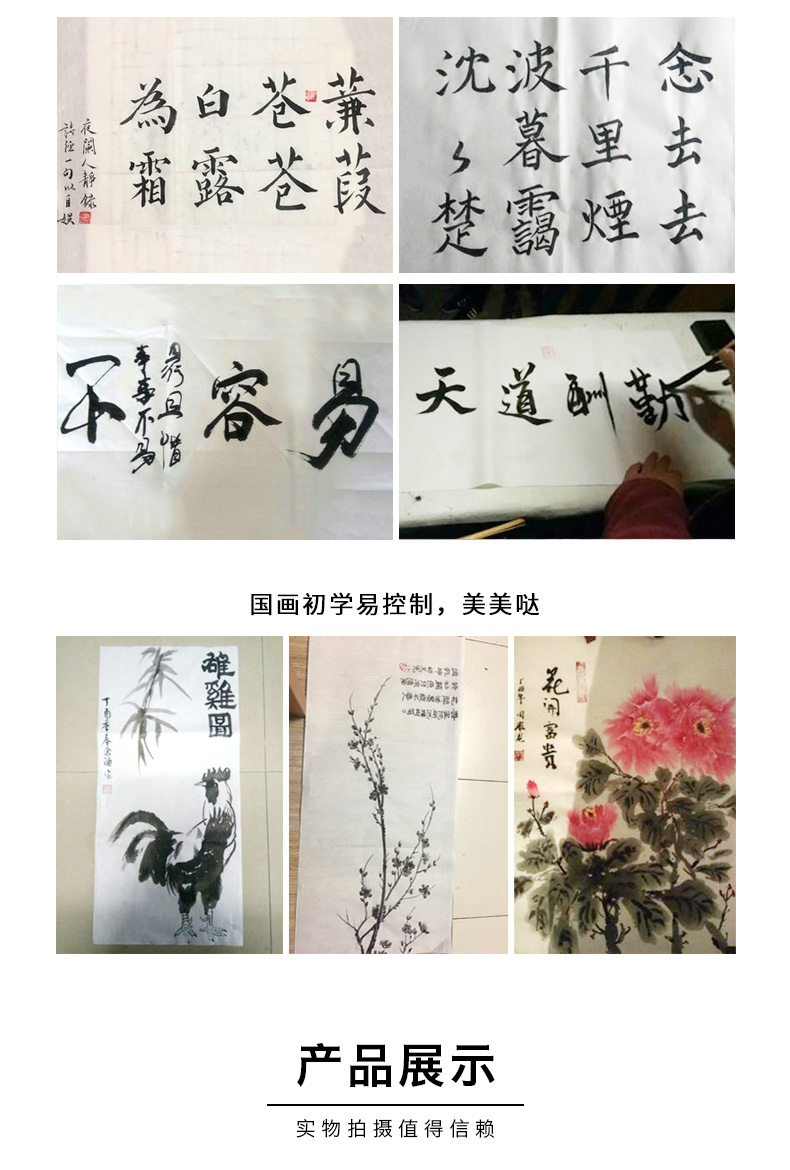 蒹葭
蒼蒼
白露
為霜
夜闌人靜錄
詩經一句以自娛
念去去
千里煙
波暮靄
沈々楚
不容易
且行且惜
事事不易
天道酬勤
国画初学易控制，美美哒
雄雞圖
花開富貴
产品展示
实物拍摄值得信赖